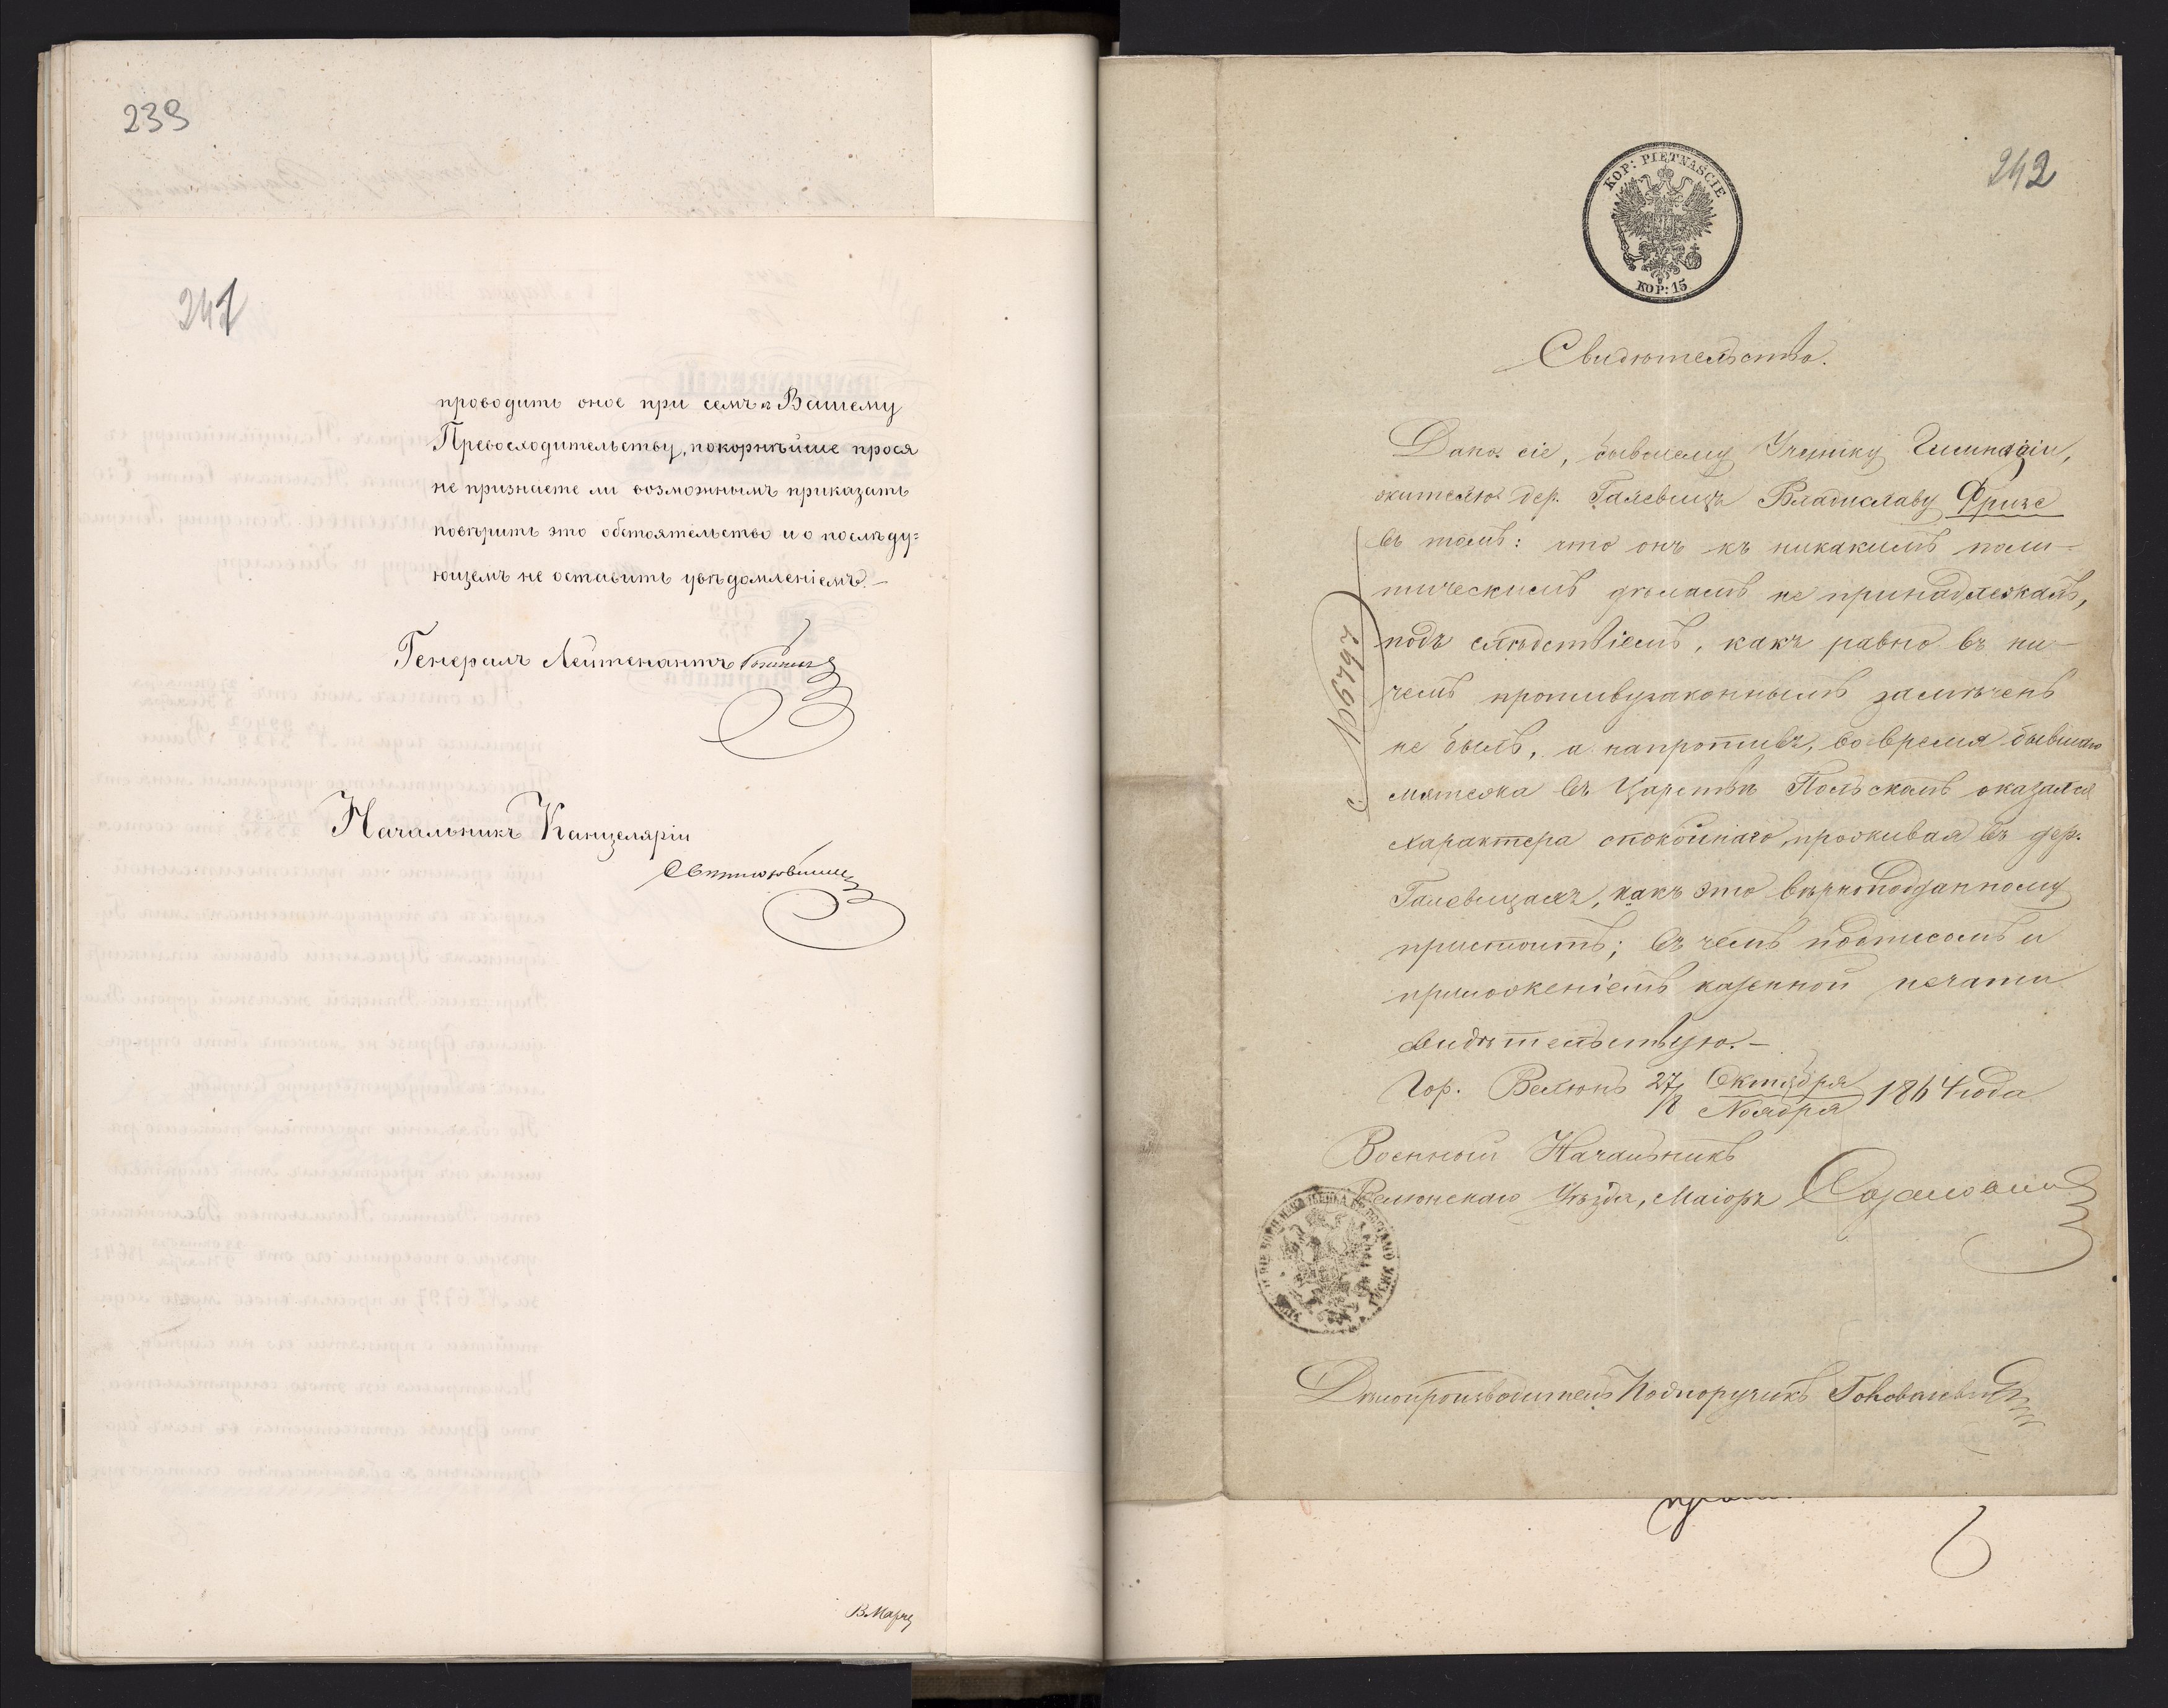 239
241
проводить оное при семъ къ Вашему
Превосходительству, покорнѣйше прося
не признаете ли возможнымъ приказать
повѣрить это обстоятельство и о послѣду=
ющемъ не оставить увѣдомленіемъ.—
Генералъ Лейтенантъ
Начальникъ Канцеляріи
В. Марц
242
KOP: PIĘTNAŚCIE
KOP: 15
Свидѣтельство.
Дано сіе, бывшему Ученику Гимназіи,
жителю дер. Галевицъ Владиславу Фризе
въ томъ: что онъ къ никакимъ поли-
тическимъ дѣламъ не принадлежалъ,
подъ слѣдствіемъ, какъ равно въ ни-
чемъ противузаконнымъ замѣченъ
не былъ, а напротивъ, во время бывшаго
мятежа въ Царствѣ Польскомъ оказался
характера спокойнаго, проживая въ дер.
Галевицахъ, какъ это вѣрноподданному
пристоитъ; въ чемъ подписомъ и
приложеніемъ казенной печати
свидѣтельствую.—
Гор. Велюнь 27/8 Октября/Ноября 1864 года
Военный Начальникъ
Велюнскаго Уѣзда, Маіоръ
Дѣлопроизводитель Подпоручикъ
№ 6797